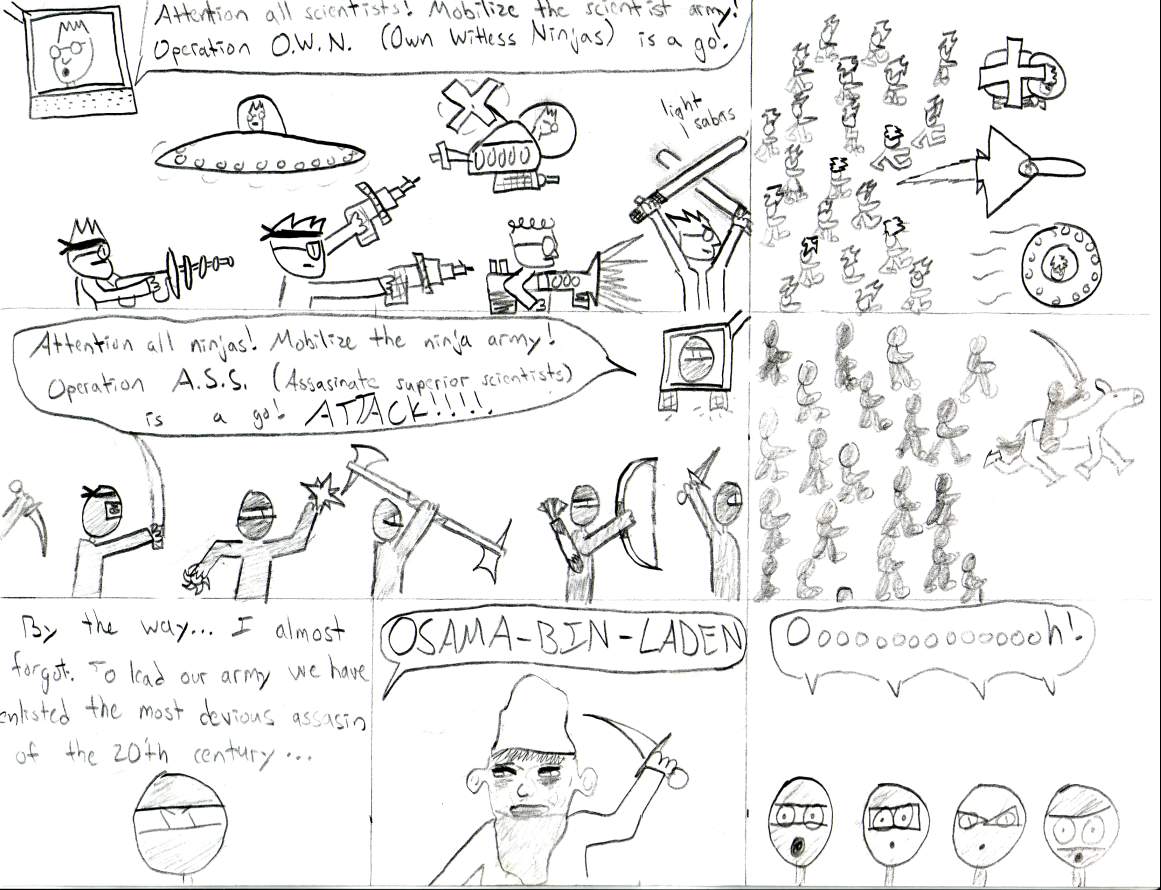 Attention all scientists! Mobilize the scientist army!
Operation O.W.N. (Own Witless Ninjas) is a go!
light
sabas
Attention all ninjas! Mobilize the ninja army!
Operation A.S.S. (Assasinate superior scientists)
is a go! ATTACK!!!!!
By the way... I almost
forgot. To lead our army we have
enlisted the most devious assasin
of the 20'th century...
OSAMA-BIN-LADEN
Oooooooooooooh!